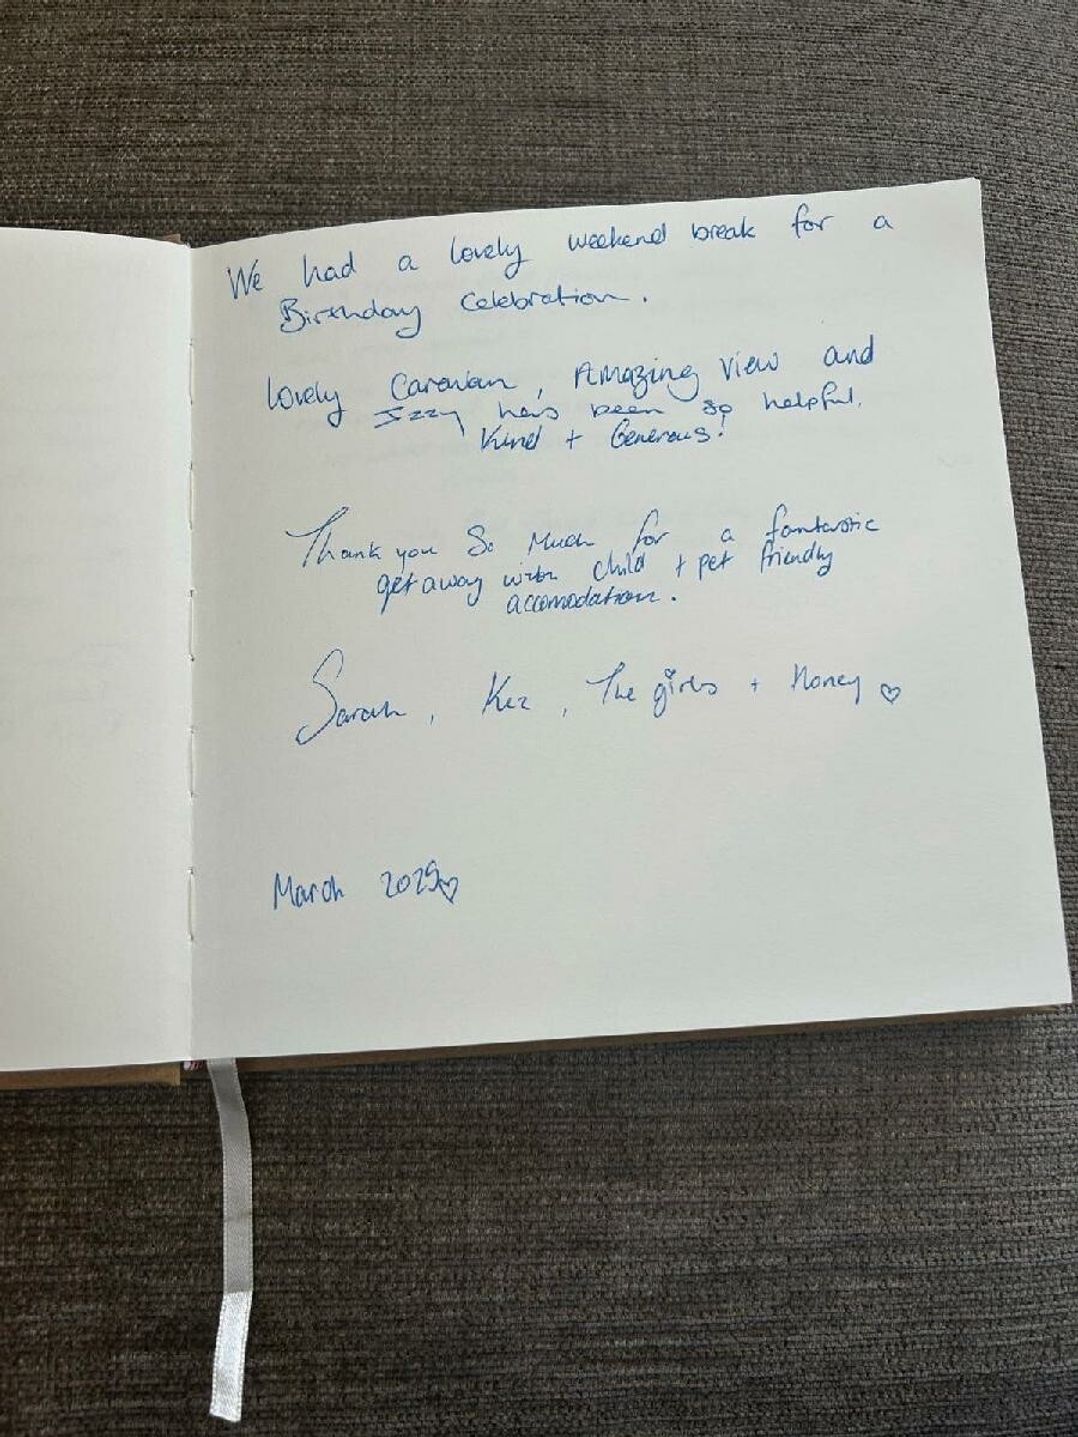 We had a lovely weekend break for a
Birthday Celebration.
Lovely Caravan, Amazing View and
Izzy has been so helpful,
Kind + Generous!
Thank you So Much for a fantastic
getaway with child + pet friendly
accomodation.
Sarah, Kez, The girls + Honey ♡
March 2025♡